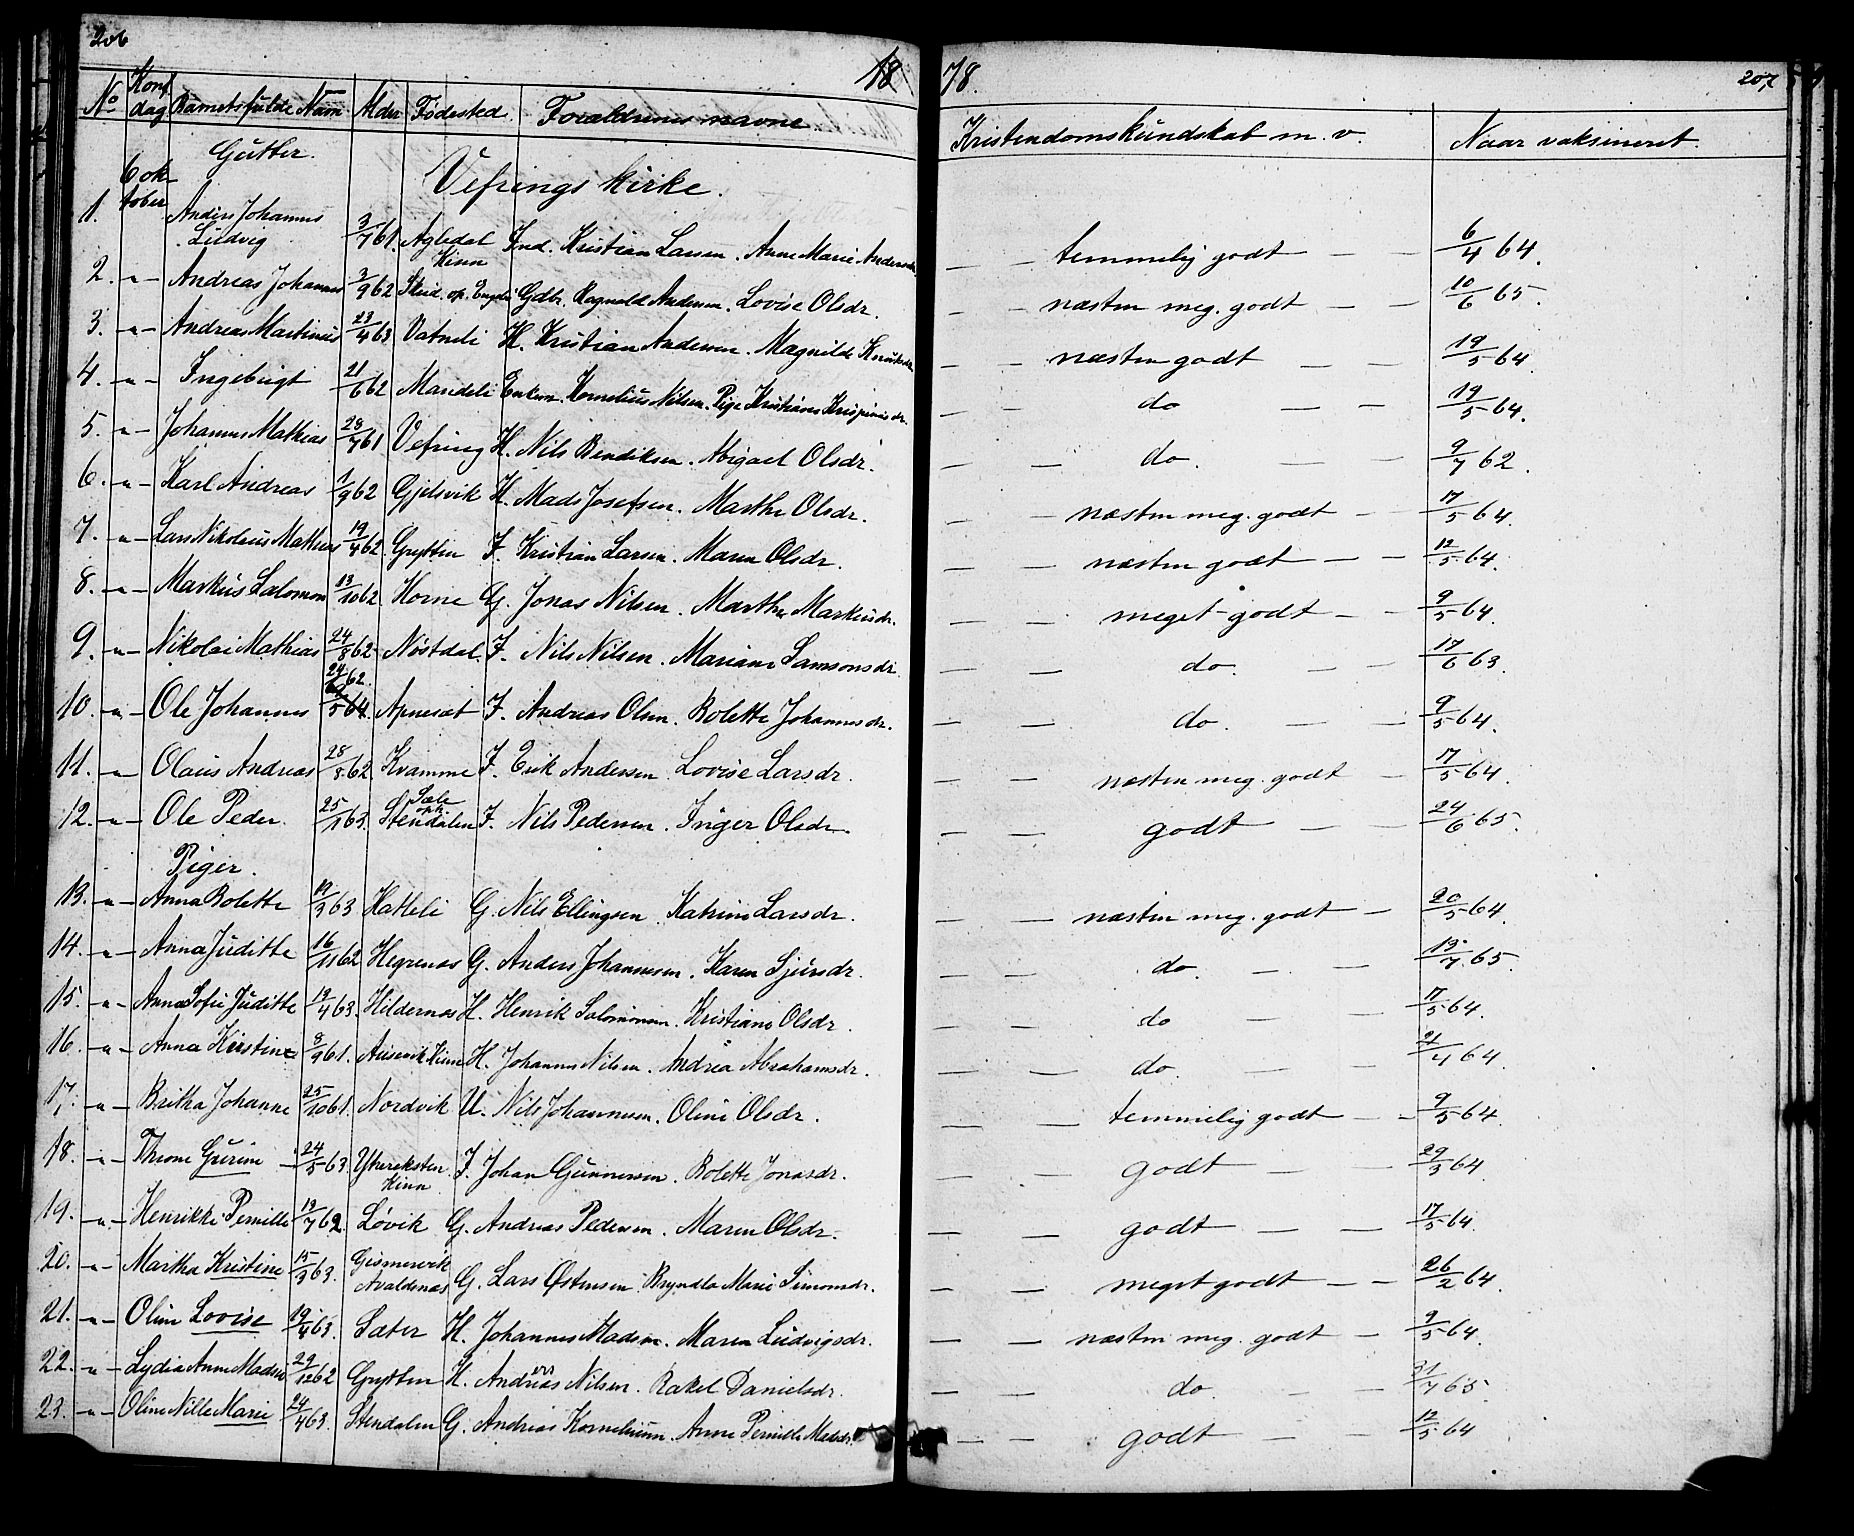 206
1878.
207
No Konf dag Barnets fulde Navn Alder Fødested. Forældrenes navne Kristendomskundskab m. v. Naar vaksineret
Gutter.
6 ok
tober
Vefrings kirke.
1. Anders Johannes
Ludvig 3/7 61. Agledal Ind. Kristian Larsen. Anne Marie Andersdr — — temmelig godt — — 6/4 64.
Kinn
2. -"- Andreas Johannes 3/9 62 Skud. op. Gdbr. Ragnald Andersen. Lovise Olsdr. — — næsten meg. godt — — 10/6 65.
3. -"- Andreas Martinus 23/4 63 Vatneli H. Kristian Andersen. Magnilde — — næsten godt — — 19/5 64.
4. -"- Ingebrigt 21/6 62 Mardeli Enkem. Kornelius Nilsen. Pige Kristiane — — do — — 19/5 64.
5. -"- Johannes Mathias 28/7 61 Vefring H. Nils Bendiksen. Abigael Olsdr. — — do. — — 9/7 62.
6. -"- Karl Andreas 1/9 62 Gjelsvik H. Mads Josefsen. Marthe Olsdr. — — næsten meg. godt — 17/5 64.
7. -"- Lars Nikolaus Mathias 19/4 62 Grytten F. Kristian Larsen. Maren Olsdr. — — næsten godt — — 12/5 64.
8. -"- Markus Salomon 13/10 62 Horne G. Jonas Nilsen. Marthe Markusdr. — — meget godt — — 9/5 64.
9. -"- Nikolai Mathias 24/8 62 Nøstdal F. Nils Nilsen. Mariane Samsonsdr. — — do. — — 17/6 63.
24/6 62.
10. -"- Ole Johannes 5 64. Apnesæt F. Andreas Olsen. Bolette Johannesdr. — — do. — — 9/5 64.
11. -"- Olaus Andreas 28/8 62 Kvamme F. Erik Andersen Lovise Larsdr. næsten meg. godt — 17/5 64.
Sæle
oph.
12. -"- Ole Peder. 25/1 63. Stendalen F. Nils Pedersen. Inger Olsdr. — — godt — — 24/6 65.
Piger.
13. -"- Anna Bolette 19/3 63 Hatleli G. Nils Ellingsen. Katrine Larsdr. — — næsten meg. godt — 20/5 64.
14. -"- Anna Juditte 16/11 62 Hegrenæs G. Anders Johannesen. Karen Sjursdr. — — do. — — 13/7 65.
15. -"- Anna Sofie Juditte 13/4 63. Hildernæs H. Henrik Salomonsen. Kristiane Olsdr. — — do — — 17/5 64.
16. -"- Anna Kirstine 8/9 61. Ausevik Kinn H. Johannes Nilsen. Andrea Abrahamsdr. — — do. — — 4 64.
17. -"- Britha Johanne 25/10 61. Nordvik U. Nils Johannesen. Oline Olsdr. — — temmelig godt — — 9/5 64.
18. -"- Gurine 24/5 63. F. Johan Gunnersen. Bolette Jonasdr. — — godt — — 29/3 64.
Kinn
19. -"- Henrikke Pernille 19/7 62. Løvik G. Andreas Pedersen. Maren Olsdr. — — godt — — 17/5 64.
20. -"- Martha Kristine 15/3 63. Gismervik
Avaldsnæs G. Lars Østensen. Bryndla Marie Simonsdr. — — meget godt — — 26/2 64.
21. -"- Oline Lovise 19/4 63. Sæter H. Johannes Madsen. Maren Ludvigsdr. — — næsten meg. godt — 9/5 64.
22. -"- Lydia Anne 29/12 62 Grytten H. Andreas Nilsen. Rakel Danielsdr. — — do. — — 7 65.
23. -"- Oline Nille Marie 24/4 63. Stendalen G. Andreas Korneliusen. Anne Pernille Madsdr. — — godt — — 12/5 64